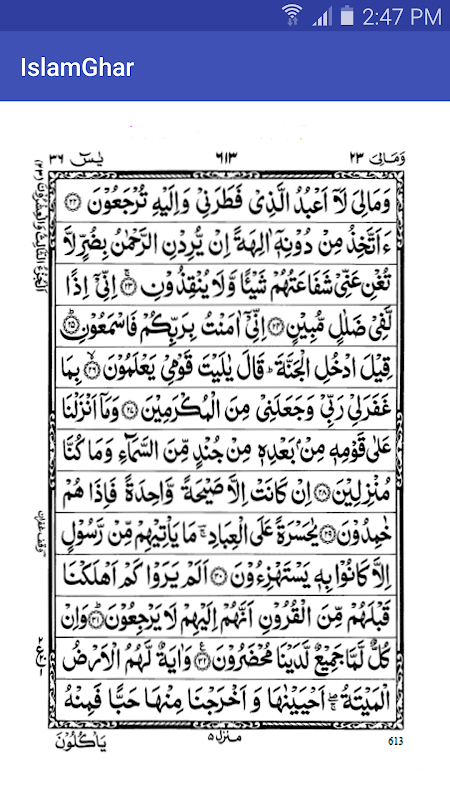 2:47 PM
IslamGhar
وَمَالِىَ ٢٣
٦١٣
يٰسٓ ٣٦
وَمَالِىَ لَآ اَعْبُدُ الَّذِىْ فَطَرَنِىْ وَاِلَيْهِ تُرْجَعُوْنَ ﴿٢٢﴾
ءَاَتَّخِذُ مِنْ دُوْنِهٖٓ اٰلِهَةً اِنْ يُّرِدْنِ الرَّحْمٰنُ بِضُرٍّ لَّا
تُغْنِ عَنِّىْ شَفَاعَتُهُمْ شَيْـًٔا وَّلَا يُنْقِذُوْنِ ﴿٢٣﴾ اِنِّىْٓ اِذًا
لَّفِىْ ضَلٰلٍ مُّبِيْنٍ ﴿٢٤﴾ اِنِّىْٓ اٰمَنْتُ بِرَبِّكُمْ فَاسْمَعُوْنِ ﴿٢٥﴾
قِيْلَ ادْخُلِ الْجَنَّةَ ؕ قَالَ يٰلَيْتَ قَوْمِىْ يَعْلَمُوْنَ ﴿٢٦﴾ بِمَا
غَفَرَلِىْ رَبِّىْ وَجَعَلَنِىْ مِنَ الْمُكْرَمِيْنَ ﴿٢٧﴾ وَمَآ اَنْزَلْنَا
عَلٰى قَوْمِهٖ مِنْۢ بَعْدِهٖ مِنْ جُنْدٍ مِّنَ السَّمَآءِ وَمَا كُنَّا
مُنْزِلِيْنَ ﴿٢٨﴾ اِنْ كَانَتْ اِلَّا صَيْحَةً وَّاحِدَةً فَاِذَا هُمْ
خٰمِدُوْنَ ﴿٢٩﴾ يٰحَسْرَةً عَلَى الْعِبَادِ ۚ مَا يَاْتِيْهِمْ مِّنْ رَّسُوْلٍ
اِلَّا كَانُوْا بِهٖ يَسْتَهْزِءُوْنَ ﴿٣٠﴾ اَلَمْ يَرَوْا كَمْ اَهْلَكْنَا
قَبْلَهُمْ مِّنَ الْقُرُوْنِ اَنَّهُمْ اِلَيْهِمْ لَا يَرْجِعُوْنَ ﴿٣١﴾ وَاِنْ
كُلٌّ لَّمَّا جَمِيْعٌ لَّدَيْنَا مُحْضَرُوْنَ ﴿٣٢﴾ وَاٰيَةٌ لَّهُمُ الْاَرْضُ
الْمَيْتَةُ ۚ اَحْيَيْنٰهَا وَاَخْرَجْنَا مِنْهَا حَبًّا فَمِنْهُ
منزل ٥
يَاْكُلُوْنَ
613